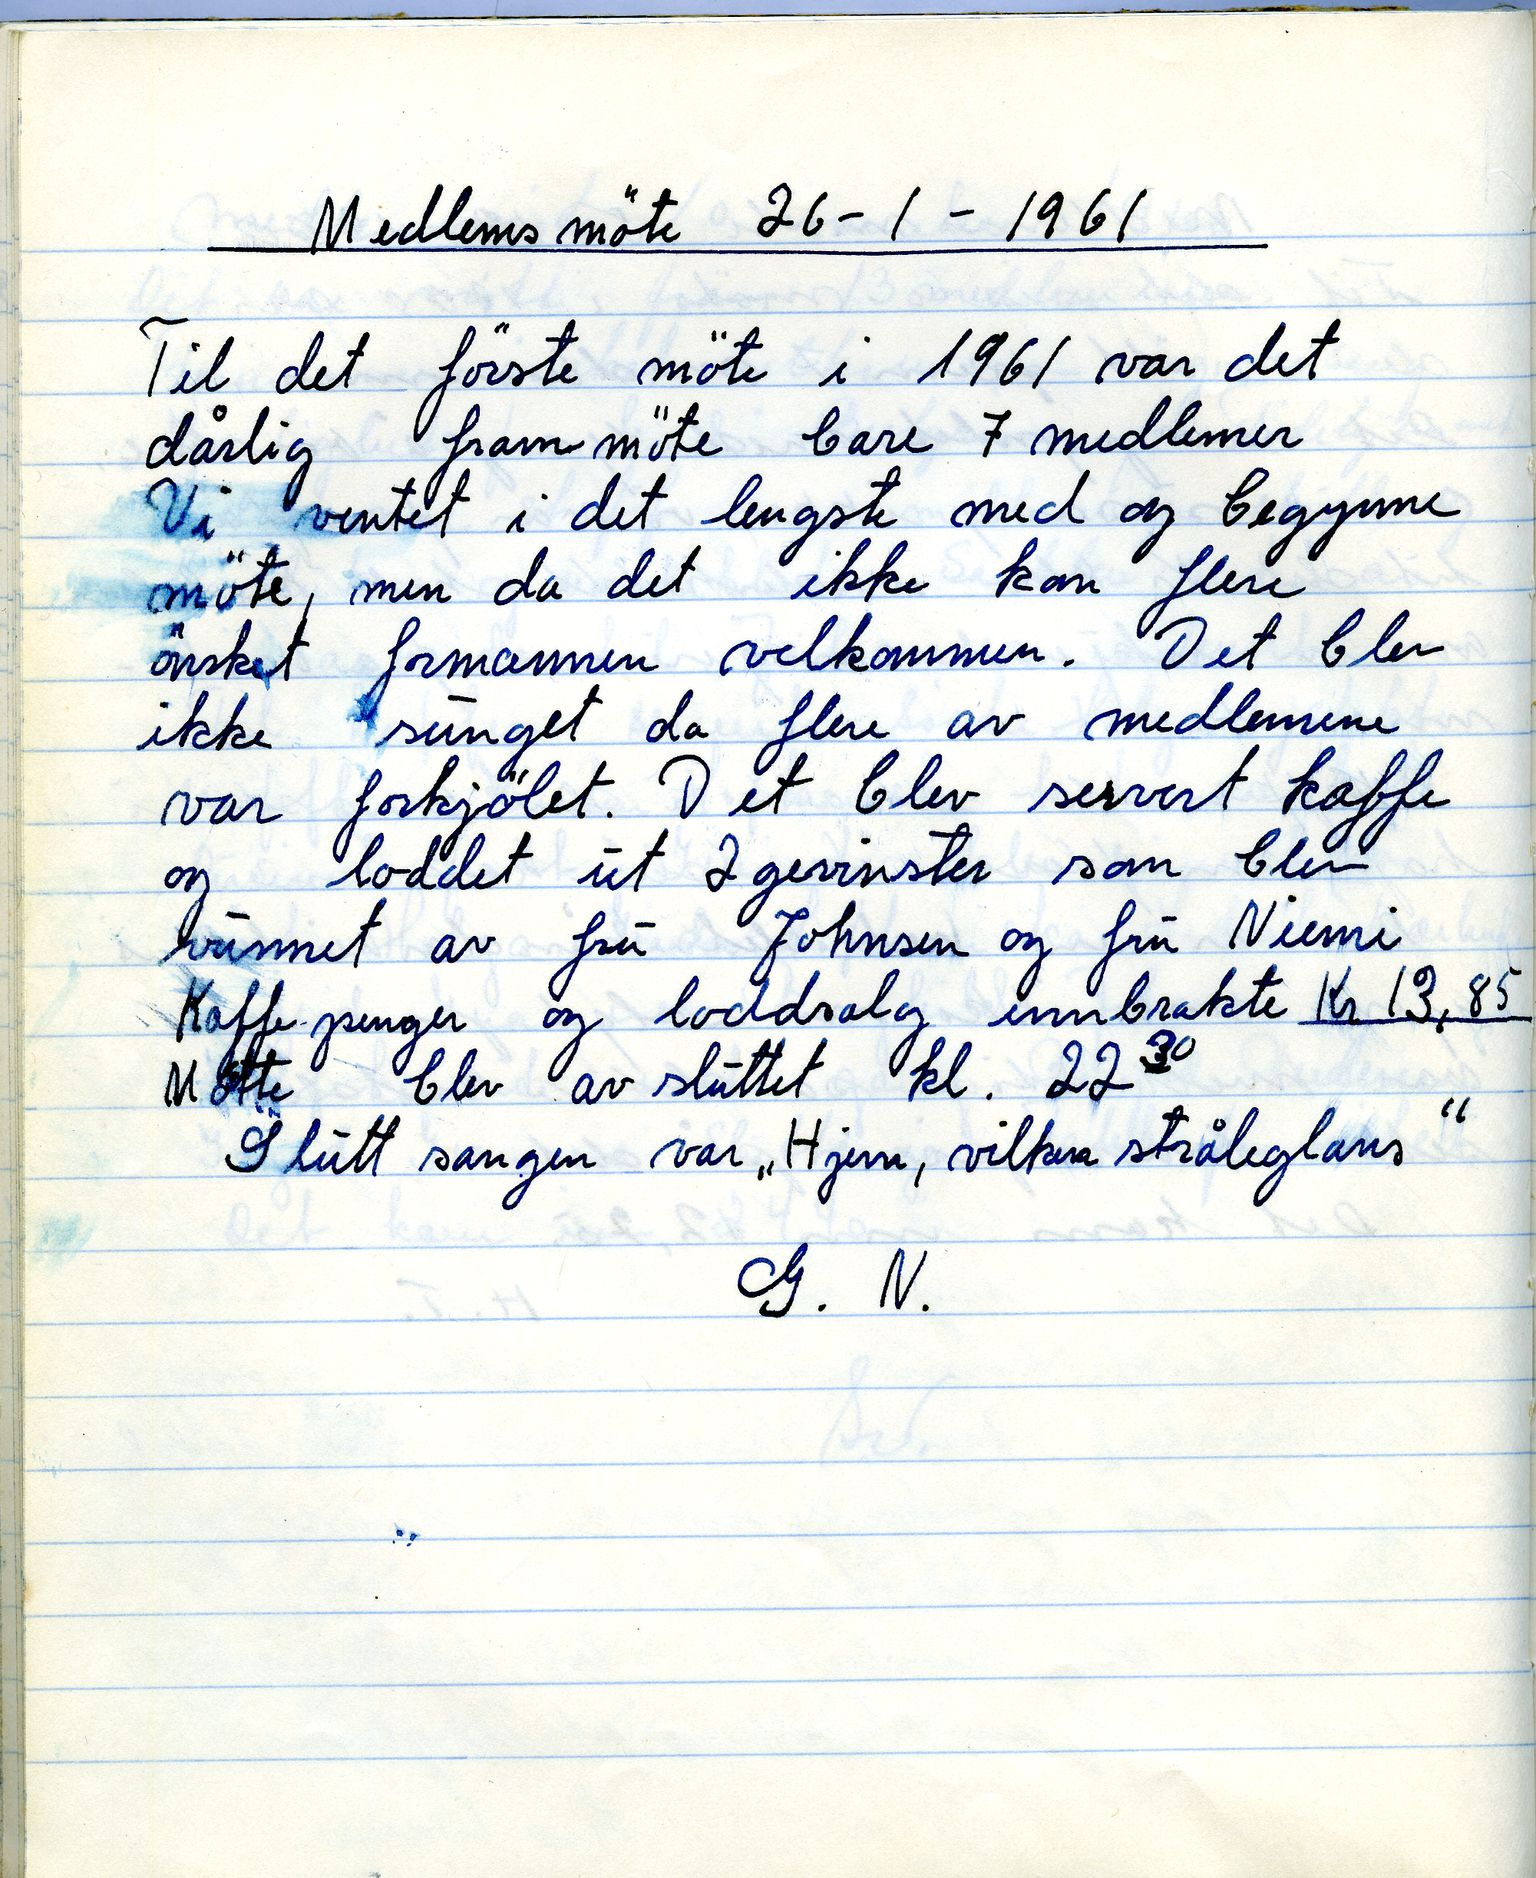 Medlems möte 26-1-1961
Til det förste möte i 1961 var det
dårlig frammöte bare 7 medlemer
Vi ventet i det lengste med og begynne
möte, men da det ikke kom flere
önsket formannen velkommen. Det blev
ikke sunget da flere av medlemene
var forkjölet. Det blev servert kaffe
og loddet ut 2 gevinster som blev
vunnet av fru Johnsen og fru Niemi
Kaffepenger og loddsalg innbrakte Kr 13,85
Mötte blev avsluttet kl. 22 30
Sluttsangen var „Hjem, vilken stråleglans“
G. N.